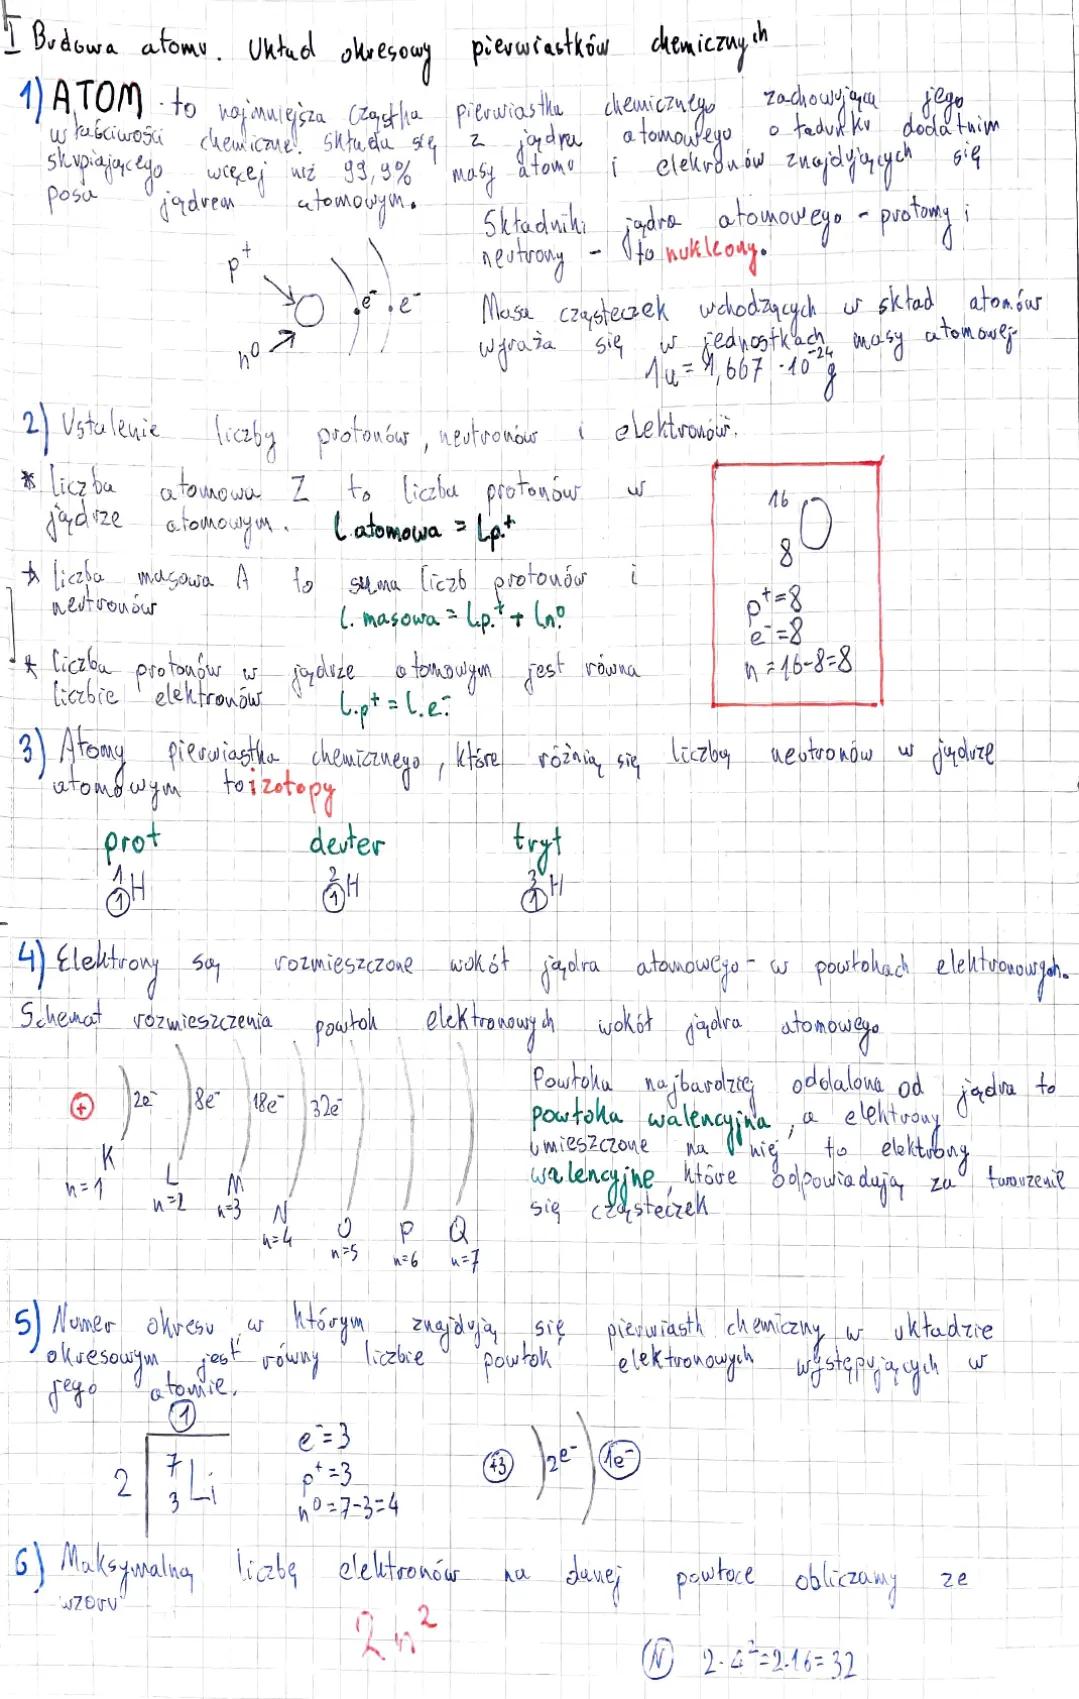 I Budowa atomu. Układ okresowy pierwiastków chemicznych
1) ATOM - to najmniejsza cząstka pierwiastka chemicznego zachowująca jego
właściwości chemiczne. Składa się z jądra atomowego o ładunku dodatnim
skupiającego więcej niż 99,9% masy atomu i elekronów znajdujących się
poza jądrem atomowym.
Składniki jądra atomowego - protony i
neutrony - to nukleony.
p⁺
e⁻ e⁻
n⁰
Masa cząsteczek wchodzących w skład atomów
wyraża się w jednostkach masy atomowej
1u = 1,667 · 10⁻²⁴ g
2) Ustalenie liczby protonów, neutronów i elektronów.
* liczba atomowa Z to liczba protonów w
jądrze atomowym. l. atomowa = l.p.⁺
* liczba masowa A to suma liczb protonów i
neutronów l. masowa = l.p.⁺ + l.n.⁰
* liczba protonów w jądrze atomowym jest równa
liczbie elektronów l.p⁺ = l.e.⁻
16
O
8
p⁺=8
e⁻=8
n = 16-8=8
3) Atomy pierwiastka chemicznego, które różnią się liczbą neutronów w jądrze
atomowym to izotopy
prot deuter tryt
¹₁H ²₁H ³₁H
4) Elektrony są rozmieszczone wokół jądra atomowego - w powłokach elektronowych.
Schemat rozmieszczenia powłok elektronowych wokół jądra atomowego
+ 2e⁻ 8e⁻ 18e⁻ 32e⁻
K L M N O P Q
n=1 n=2 n=3 n=4 n=5 n=6 n=7
Powłoka najbardziej oddalona od jądra to
powłoka walencyjna, a elektrony
umieszczone na niej to elektrony
walencyjne, które odpowiadają za tworzenie
się cząsteczek
5) Numer okresu w którym znajdują się pierwiastk chemiczny w układzie
okresowym jest równy liczbie powłok elektronowych występujących w
jego atomie.
1
2 ⁷₃Li
e⁻=3
p⁺=3
n⁰=7-3=4
+3 2e⁻ 1e⁻
6) Maksymalną liczbę elektronów na danej powłoce obliczamy ze
wzoru
2n²
N 2·4²=2·16=32